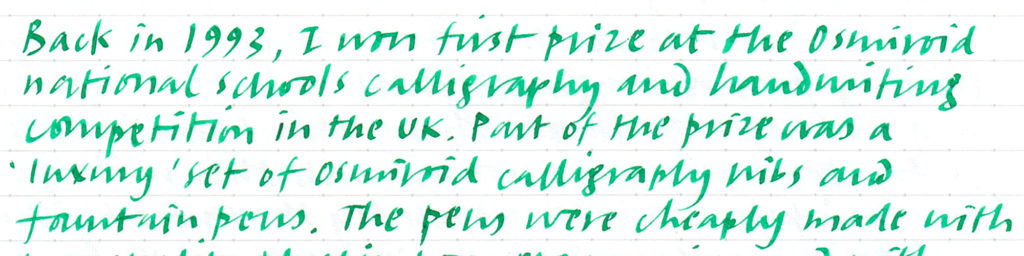 Back in 1993, I won first prize at the Osmiroid
national schools calligraphy and handwriting
competition in the UK. Part of the prize was a
'luxury' set of Osmiroid calligraphy nibs and
fountain pens. The pens were cheaply made with